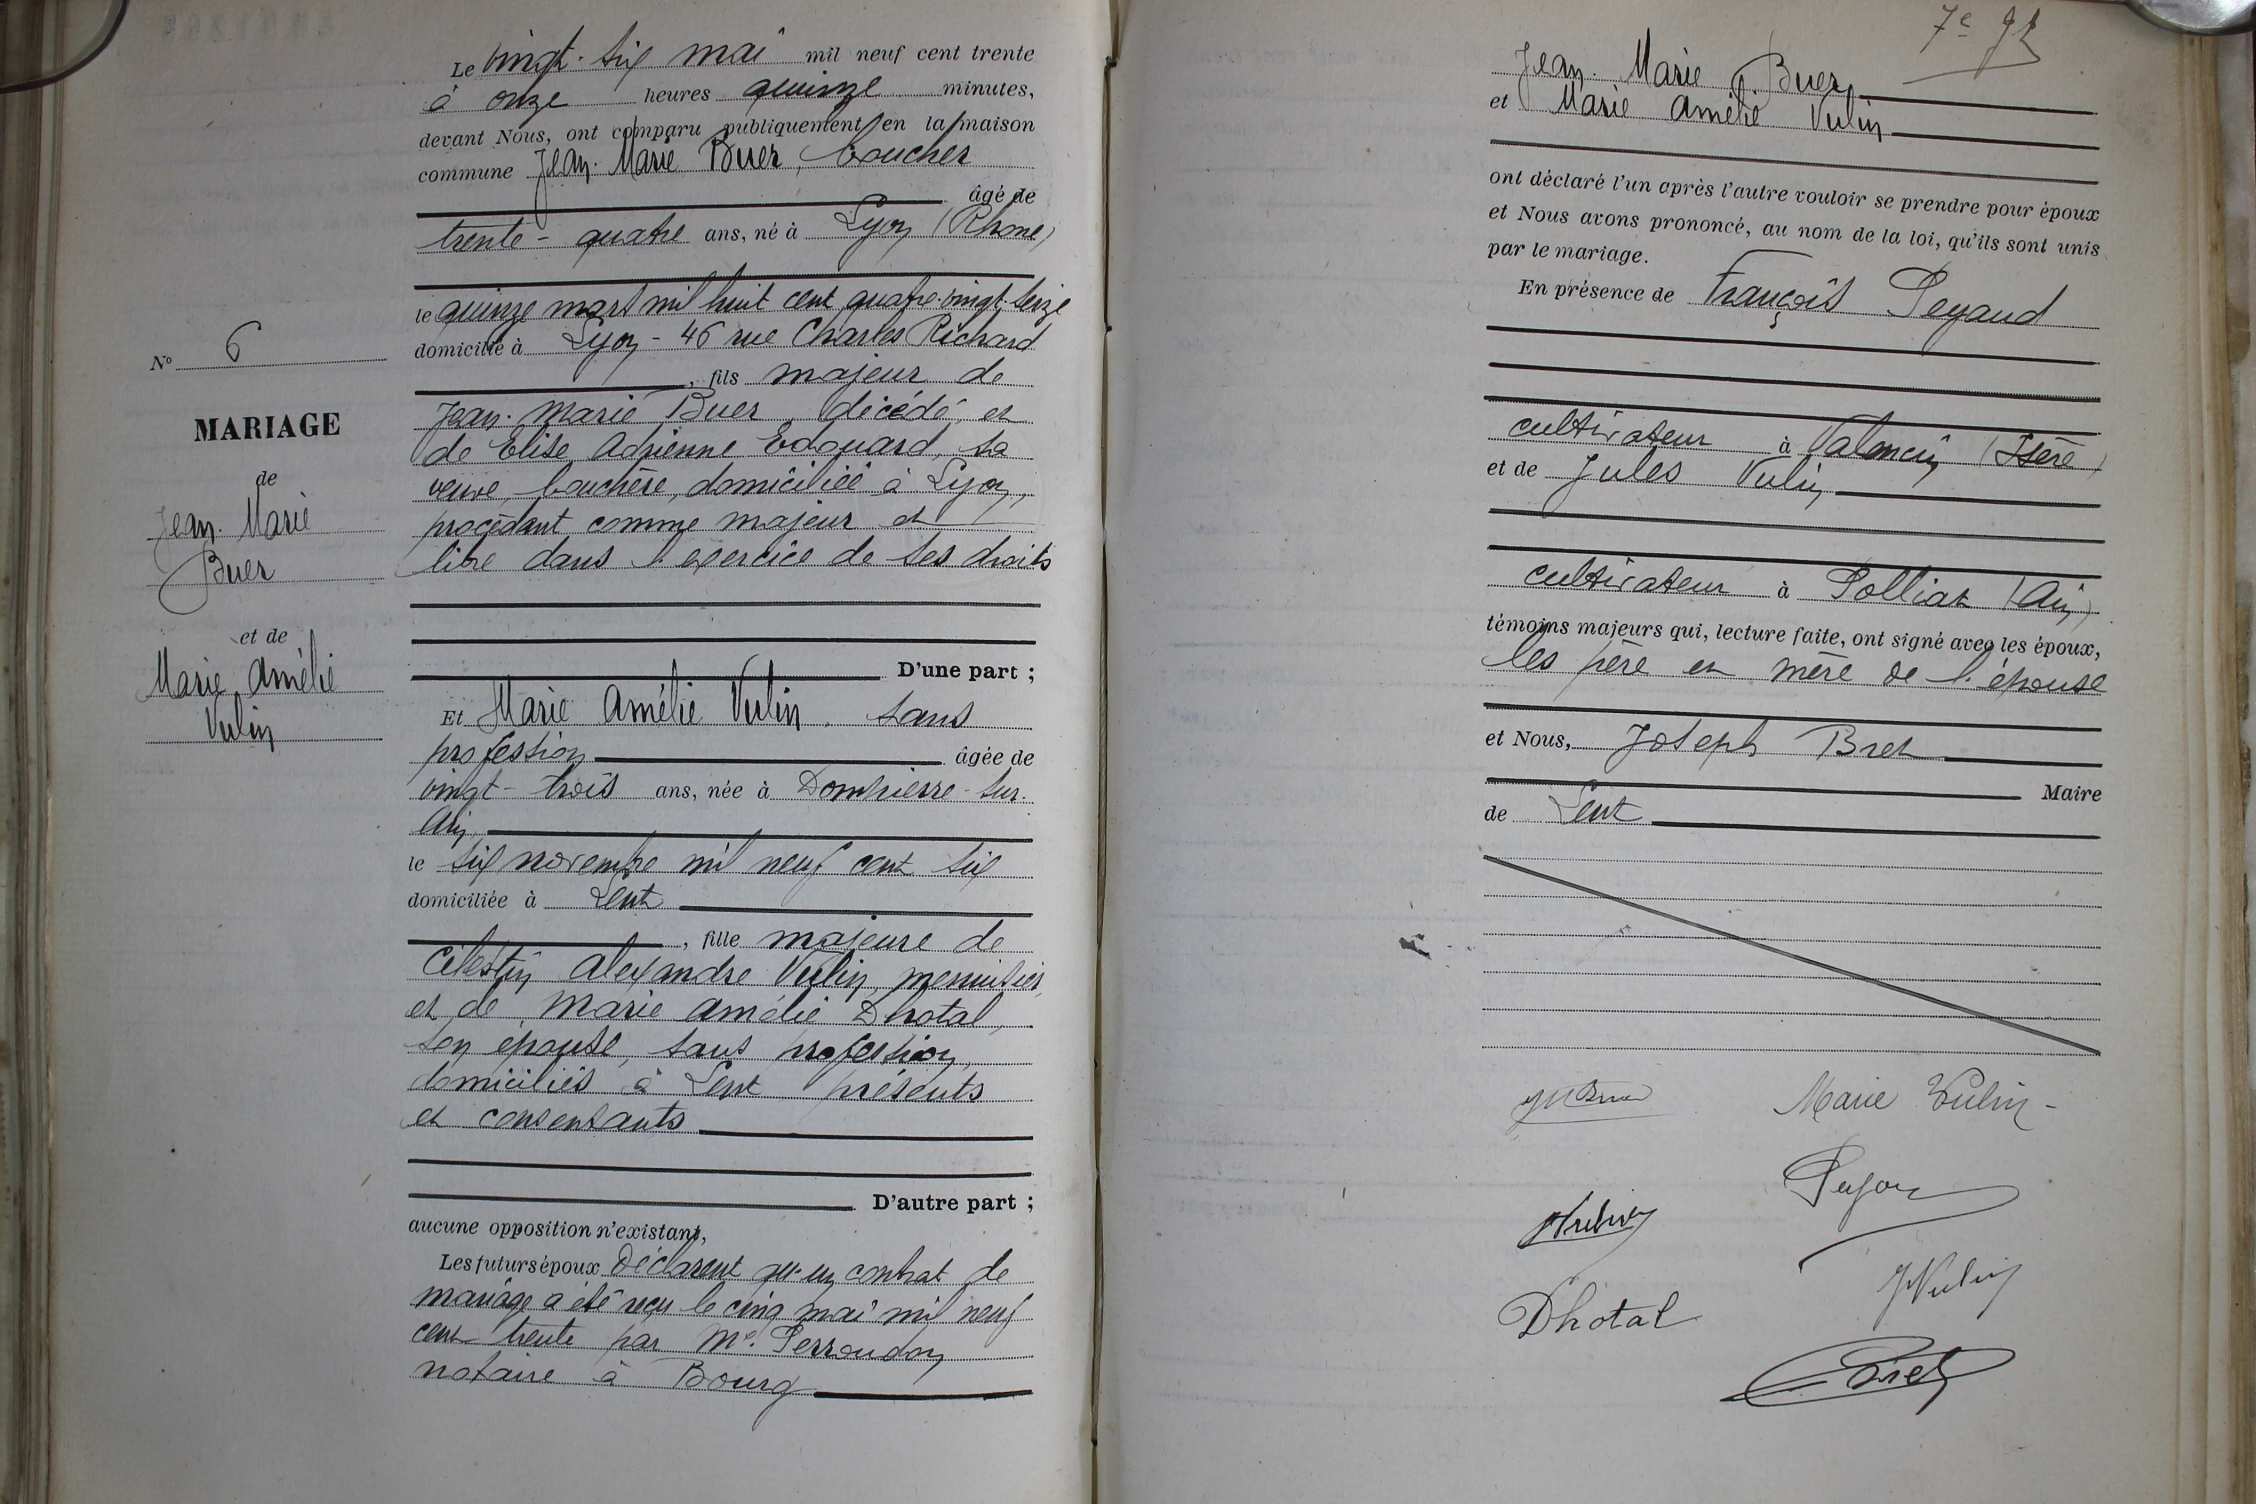 N° 6
MARIAGE
de
Jean-Marie
Buer
et de
Marie Amélie
Vulin
Le vingt-six mai mil neuf cent trente
à onze heures quinze minutes,
devant Nous, ont comparu publiquement en la maison
commune Jean-Marie Buer, boucher
âgé de
trente-quatre ans, né à Lyon (Rhône)
le quinze mars mil huit cent quatre-vingt-seize
domicilié à Lyon - 46 rue Charles Richard
, fils majeur de
Jean-Marie Buer, décédé, et
de Elise Adrienne Edouard, sa
veuve, bouchère, domiciliée à Lyon,
procédant comme majeur et
libre dans l'exercice de ses droits
D'une part ;
Et Marie Amélie Vulin, sans
profession âgée de
vingt-trois ans, née à Dompierre-sur-
Ain
le six novembre mil neuf cent six
domiciliée à Lent
, fille majeure de
Célestin Alexandre Vulin, menuisier,
et de Marie Amélie Dhotal,
son épouse, sans profession,
domiciliés à Lent présents
et consentants
D'autre part ;
aucune opposition n'existant,
Les futurs époux déclarent qu'un contrat de
mariage a été reçu le cinq mai mil neuf
cent trente par Me. Perroudon
notaire à Bourg
7e
Jean-Marie Buer
et Marie Amélie Vulin
ont déclaré l'un après l'autre vouloir se prendre pour époux
et Nous avons prononcé, au nom de la loi, qu'ils sont unis
par le mariage.
En présence de François Peyaud
cultivateur à Valencin (Isère)
et de Jules Vulin
cultivateur à Polliat (Ain)
témoins majeurs qui, lecture faite, ont signé avec les époux,
les père et mère de l'épouse
et Nous, Joseph Bret
Maire
de Lent
Marie Vulin
Vulin
J Vulin
Dhotal
Bret